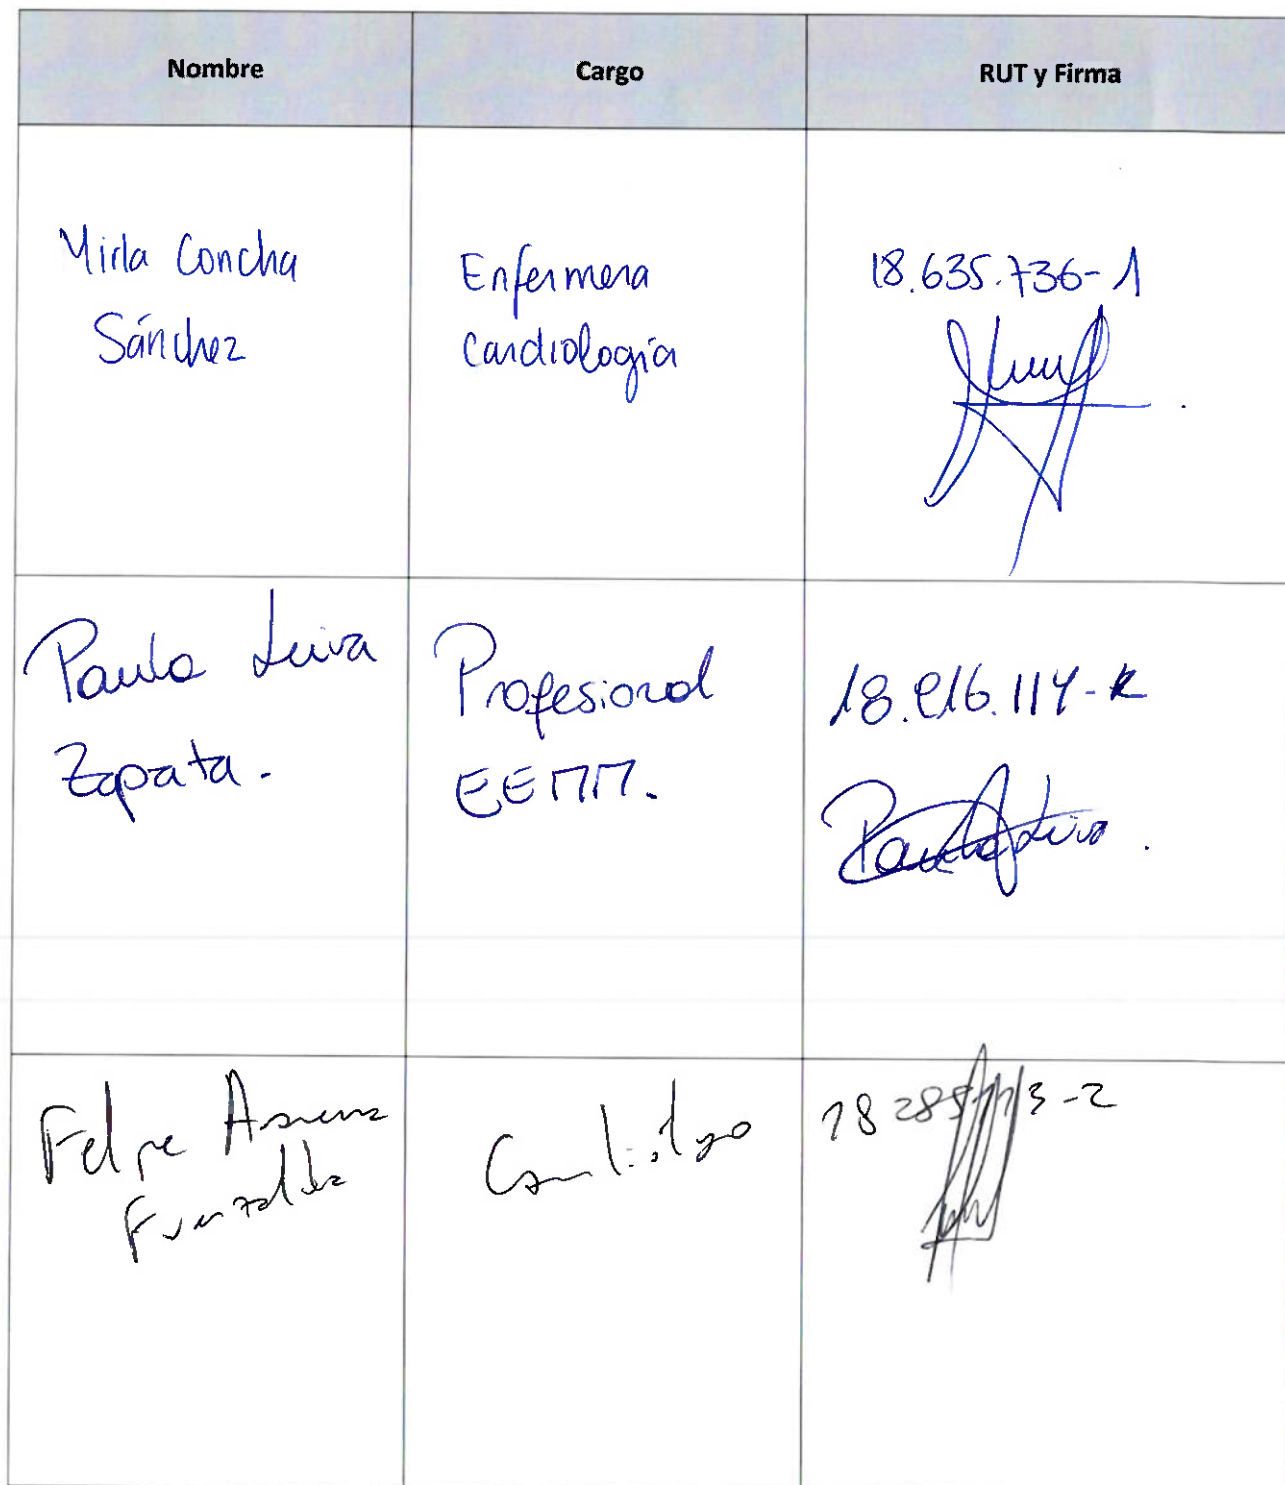 Nombre Cargo RUT y Firma
Yirla Concha
Sánchez
Enfermera
Cardiología
18.635.736-1
Paula Leiva
Zapata.
Profesional
EEMM.
18.816.114-K
Paula Leiva.
Felipe
Fuenzalida
Cardiólogo